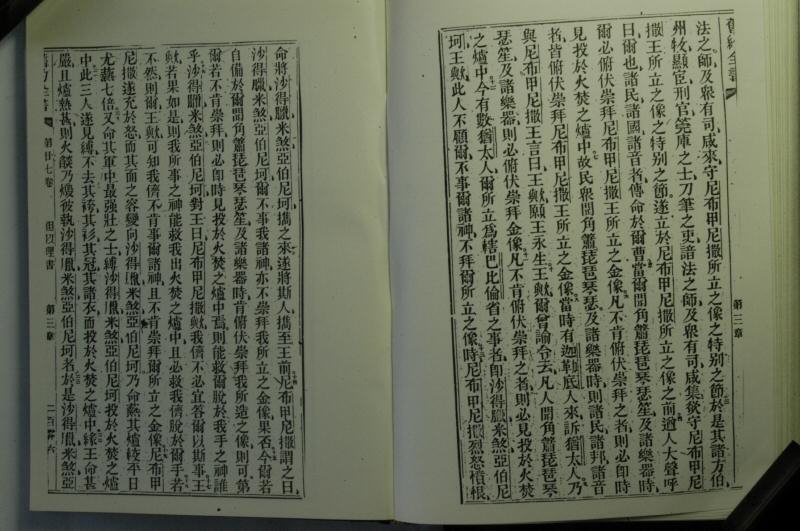 舊約全書
第三章
法之師及衆有司咸來守尼布甲尼撒所立之像之特别之節於是其諸方伯
州牧顯宦刑官筦庫之士刀筆之吏諳法之師及衆有司咸集於守尼布甲尼
撒王所立之像之特别之節遂立於尼布甲尼撒所立之像之前遒人大聲呼
曰爾也諸民諸國諸音者傳命於爾曹當爾聞角簫琵琶琴瑟及諸樂器時
爾必俯伏崇拜尼布甲尼撒王所立之金像凡不肯俯伏崇拜之者則必卽時
見投於火焚之爐中故民衆聞角簫琵琶琴瑟及諸樂器時則諸民諸邦諸音
者皆俯伏崇拜尼布甲尼撒王所立之金像當時有迦勒底人來訴猶太人乃
與尼布甲尼撒王言曰王歟願王永生王歟爾曾諭令云凡人聞角簫琵琶琴
瑟笙及諸樂器則必俯伏崇拜金像凡不肯俯伏崇拜之者則必見投於火焚
之爐中今有數猶太人爾所立爲轄巴比倫省之事者卽沙得臘米煞亞伯尼
坷王歟此人不顧爾不事爾諸神不拜爾所立之金像時尼布甲尼撒烈怒憤恨
命將沙得臘米煞亞伯尼坷攜之來遂將斯人攜至王前尼布甲尼撒謂之曰
沙得臘米煞亞伯尼坷爾不事我諸神亦不崇拜我所立之金像果否今爾若
自備於爾聞角簫琵琶琴瑟笙及諸樂器時肯俯伏崇拜我所造之像則可第
爾若不肯崇拜則必卽時見投於火焚之爐中焉則能救爾脫於我手之神誰
乎沙得臘米煞亞伯尼坷對王曰尼布甲尼撒歟我儕不必宜答爾以斯事王
歟若果如是則我所事之神能救我出火焚之爐中且必救我儕脫於爾手若
不然則爾王歟可知我儕不肯事爾諸神且不肯崇拜爾所立之金像尼布甲
尼撒遂充於怒而其面之容變向沙得臘米煞亞伯尼坷乃命爇其爐較平日
尤爇七倍又命其軍中最强壯之士縛沙得臘米煞亞伯尼坷投於火焚之爐
中此三人遂見縛不去其袴其衫其冠其諸衣而投於火焚之爐中緣王命甚
嚴且爐熱甚則火燄乃燬彼執沙得臘米煞亞伯尼坷者於是沙得臘米煞亞
舊約全書
第廿七卷
但以理書
第三章
二百零六